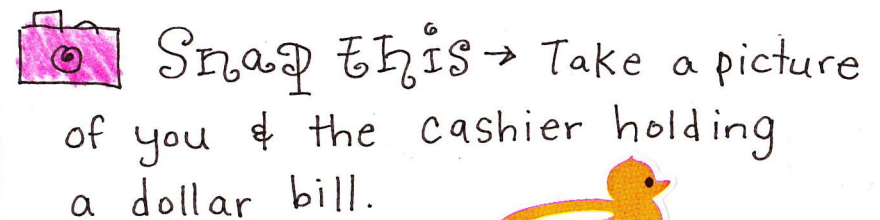 Snap this → Take a picture
of you & the cashier holding
a dollar bill.